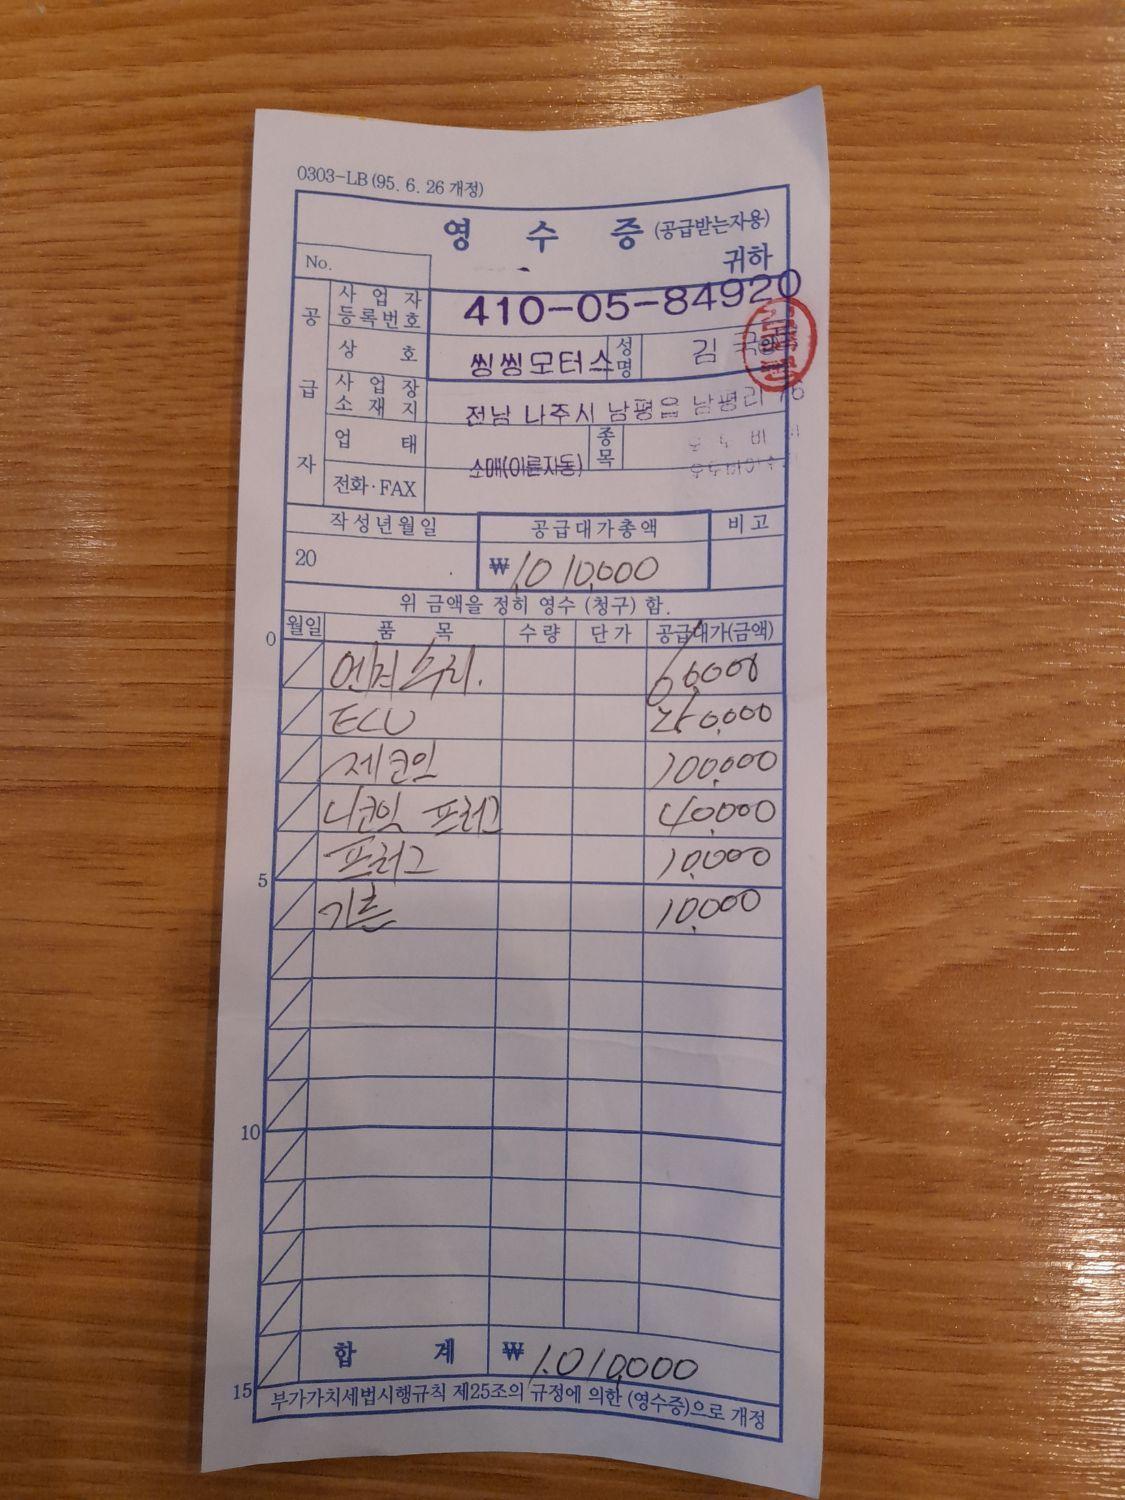 0303-LB (95. 6. 26 개정)
영 수 증 (공급받는자용)
No.
귀하
공급자
사업자등록번호 410-05-84920
상호 씽씽모터스 성명 김국
사업장소재지 전남 나주시 남평읍 남평리 76
업태 소매(이륜자동) 종목
전화·FAX
작성년월일 공급대가총액 비고
20 ₩1,010,000
위 금액을 정히 영수 (청구) 함.
월일 품목 수량 단가 공급대가(금액)
0
엔진수리.
ECU 250,000
제코일 100,000
니코일 프러그 40,000
프러그 10,000
5
기름 10,000
10
합 계 ₩1,010,000
15
부가가치세법시행규칙 제25조의 규정에 의한 (영수증)으로 개정